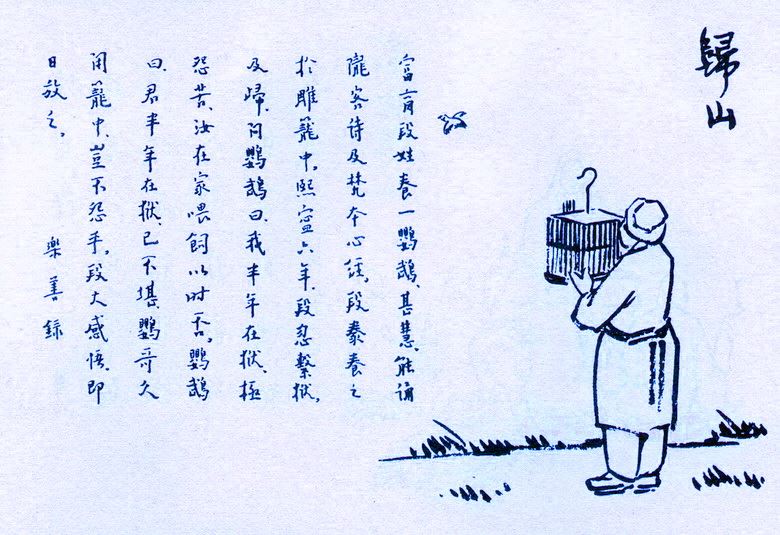 歸山
富商段姓養一鸚鵡、甚慧、能誦
隴客詩及梵本心經。段豢養之
於雕籠中。熙寧六年、段忽繫獄。
及歸、問鸚鵡曰、我半年在獄、極
怨苦、汝在家喂飼以時否。鸚鵡
曰、君半年在獄、已不堪、鸚哥久
閉籠中、豈不怨乎。段大感悟、即
日放之。
樂善錄